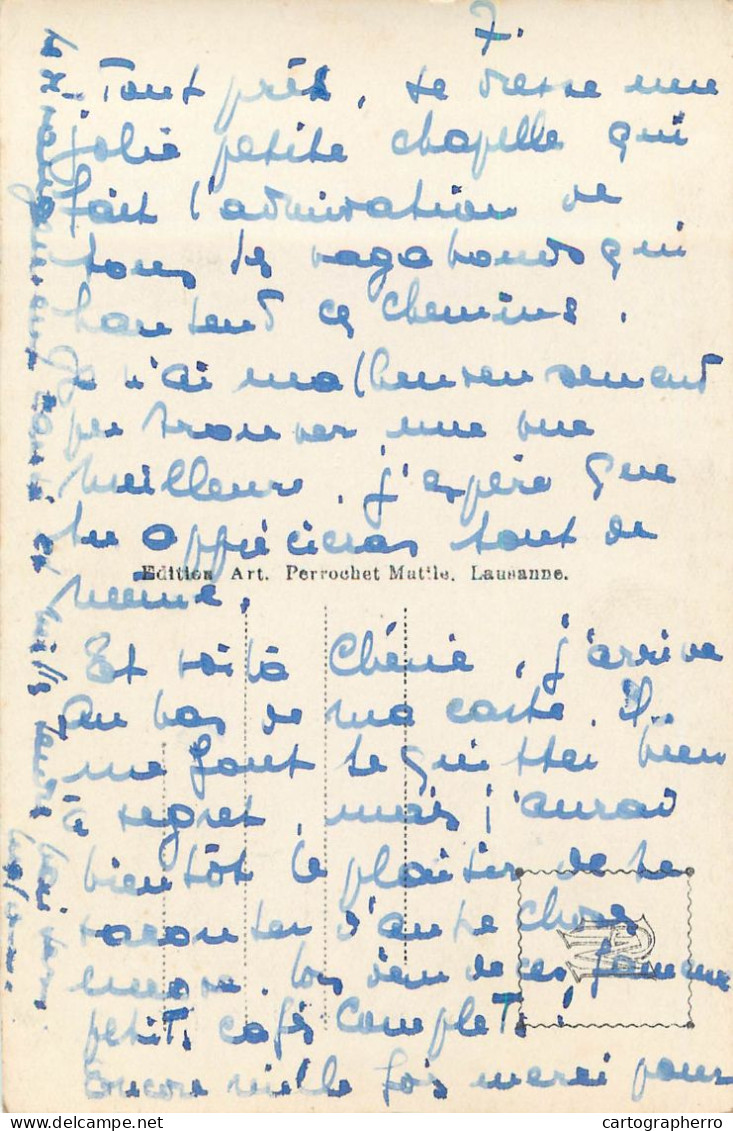 7.
Tout près, se dresse une
jolie petite chapelle qui
fait l'admiration de
tous les vagabonds qui
hantent ces chemins.
Je n'ai malheureusement
pu trouver une vue
meilleure. J'espère que
tu apprécieras tout de
Edition Art. Perrochet Matile. Lausanne.
même.
Et voilà Chérie, j'arrive
au bas de ma carte. Il
me faut te quitter bien
à regret, mais j'aurai
bientôt le plaisir de te
raconter d'autre chose
encore. lors de ces fameux
petits cafés complets!
Encore mille fois merci pour
et mille
delcampe.net
cartographerro